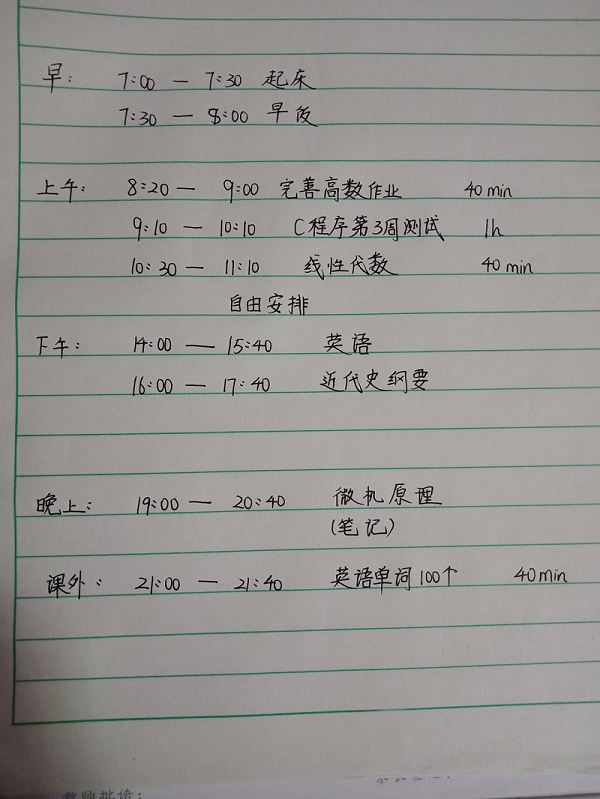 早： 7:00 — 7:30 起床
7:30 — 8:00 早饭
上午： 8:20 — 9:00 完善高数作业 40 min
9:10 — 10:10 C程序第3周测试 1h
10:30 — 11:10 线性代数 40 min
自由安排
下午： 14:00 — 15:40 英语
16:00 — 17:40 近代史纲要
晚上： 19:00 — 20:40 微机原理
(笔记)
课外： 21:00 — 21:40 英语单词100个 40min
教师批语：